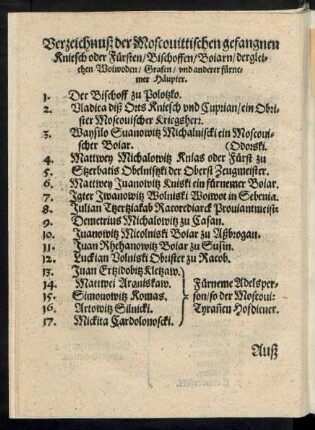 Verzeichnuß der Moscouittischen gefangnen
Kniesch oder Fürsten/ Bischoffen/ Boiarn/ derglei-
chen Woiwoden/ Grafen/ vnd anderer fürne-
mer Häupter.
1. Der Bischoff zu Polotzko.
2. Vladica diß Orts Kniesch vnd Cuprian/ ein Obri-
ster Moscouischer Kriegsherr.
3. Waysilo Suanowitz Michalniscki ein Moscoui-
scher Boiar. (Odorski.
4. Mattwey Michalowitz Knias oder Fürst zu
5. Szerbatis Obelnitzki der Oberst Zeugmeister.
6. Mattwey Juanowitz Kniski ein fürnemer Boiar.
7. Igter Jwanowitz Wolniski Woiwot in Sebenia.
8. Julian Tzertzlakab Racorediarck Prouiantmeister
9. Demetrius Michalowitz zu Casan.
10. Juanowitz Micolniski Boiar zu Aßbrogan.
11. Juan Rhehanowitz Boiar zu Susin.
12. Luckian Volniski Obrister zu Racob.
13. Juan Ertzidobitz Kletzaw.
14. Mattwei Araniskaw.
15. Simonowitz Komas.
16. Artowitz Silnicki.
17. Mickita Cardolonoscki.
Fürneme Adelsper-
son/ so der Moscoui-
Tyrañen Hofdiener.
Auß